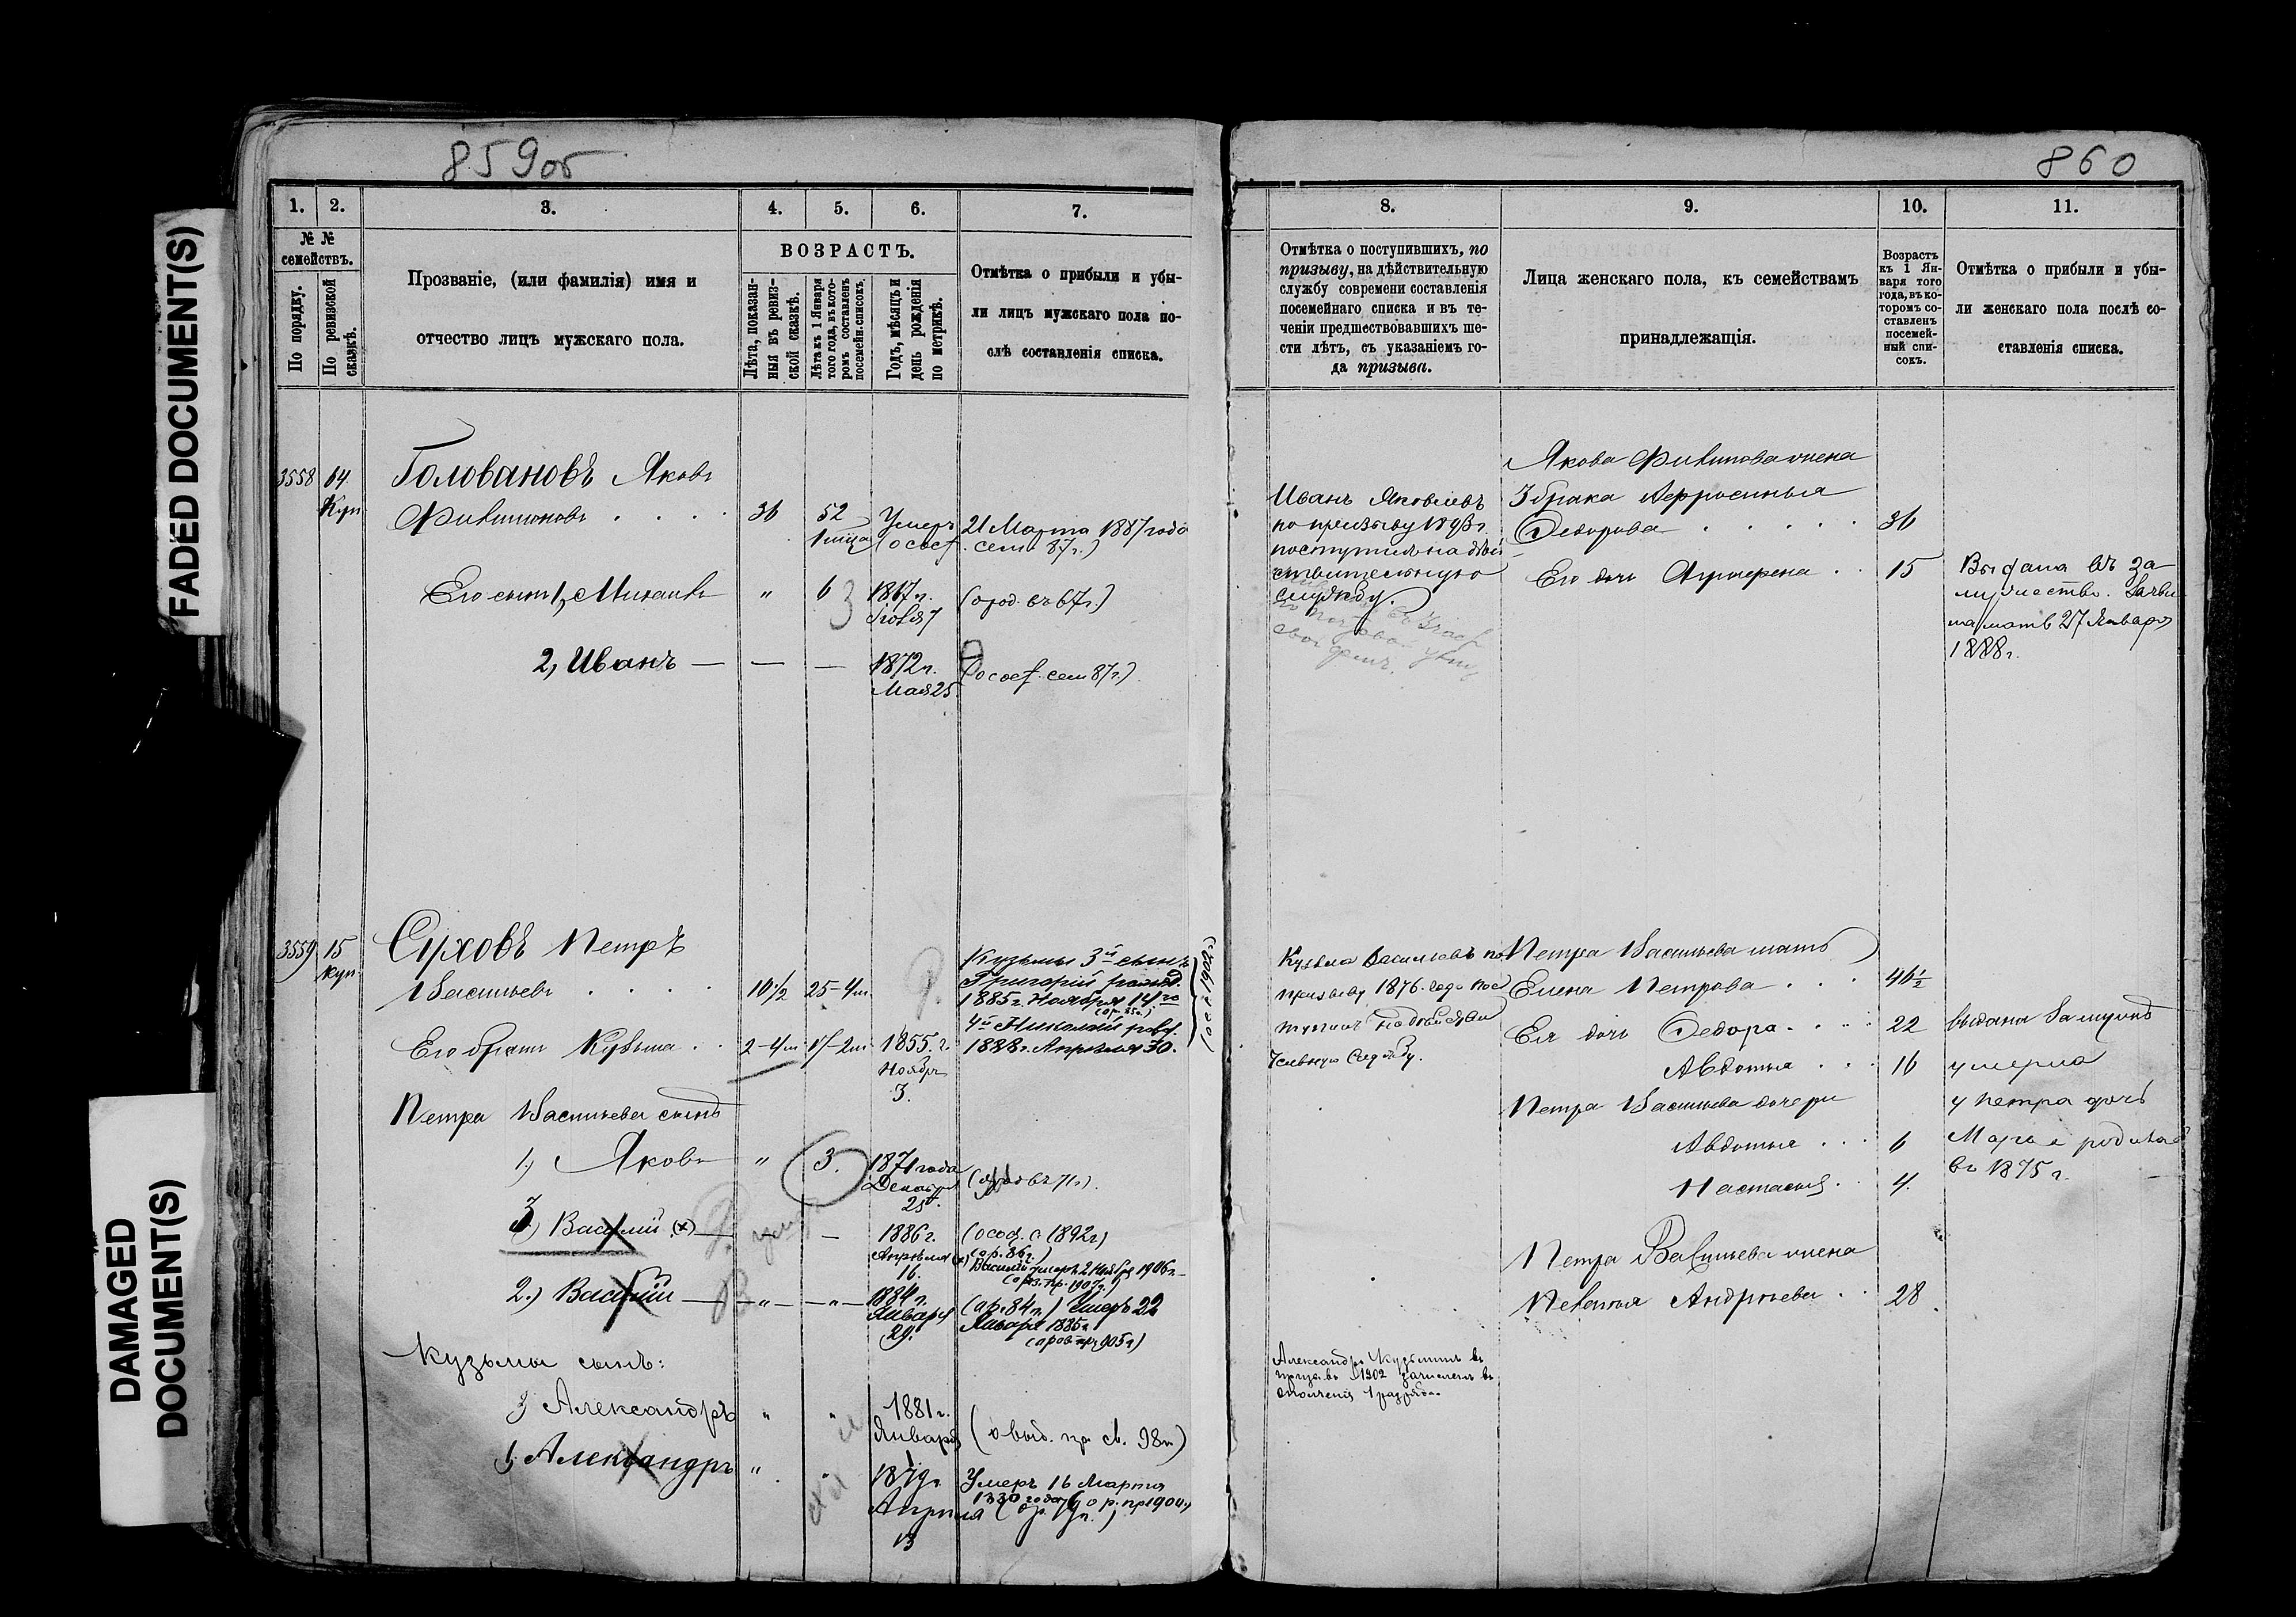 859об
860
FADED DOCUMENT(S)
DAMAGED
DOCUMENT(S)
1.
2.
3.
4.
5.
6.
7.
№ №
семействъ.
По порядку.
По ревизской
сказкѣ.
Прозваніе, (или фамилія) имя и
отчество лицъ мужскаго пола.
ВОЗРАСТЪ.
Лѣта, показан-
ныя въ ревиз-
ской сказкѣ.
Лѣта къ 1 Января
того года, въ кото-
ромъ составленъ
посемейн. списокъ.
Годъ, мѣсяцъ и
день рожденія
по метрикѣ.
Отмѣтка о прибыли и убы-
ли лицъ мужскаго пола по-
слѣ составленія списка.
3558
Головановъ Яковъ
Куп
Филимоновъ
36
52
Умеръ
21 Марта 1887 года
сем 87г.)
Его сынъ 1, Михаилъ
"
6
3
1867 г.
Іюля 7
(о род. въ 67г.)
2, Иванъ — — —
1872 г.
Мая 25
(о соеф. сем 87г.)
3559
15
куп
Суховъ Петръ
Васильевъ
10 1/2
25-4м
Кузьмы 3й сынъ
Григорій рожд.
1885 г. Ноября 14го
4й Николай рожд.
1888 г. Апрѣля 30.
Его братъ Кузьма
2-4м
17-2м
1855. г.
Ноябрь
3.
Петра Васильева сынъ
1.) Яковъ
"
3.
1871 года
Декабря
25
3.) Василій (х) —
1886 г.
Апрѣля
16.
(о соф. с 1892г)
(о р. 86г.)
Василій умеръ 2 Ноября 1906 г.
2.) Василій — — " — — " —
1884 г.
Января
29.
(о р. 84г.) Умеръ 22
Января 1885 г.
Кузьмы сынъ:
Александръ
"
"
1881 г.
Января
1
(о выд. пр. св. 98г)
1. Александръ
"
"
1879 г
Апрѣля
13
Умеръ 16 Марта
1880 года (о р. пр 1904г)
8.
9.
10.
11.
Отмѣтка о поступившихъ, по
призыву, на дѣйствительную
службу современи составленія
посемейнаго списка и въ те-
ченіи предшествовавшихъ ше-
сти лѣтъ, съ указаніемъ го-
да призыва.
Лица женскаго пола, къ семействамъ
принадлежащія.
Возрастъ
къ 1 Ян-
варя того
года, въ ко-
торомъ со-
ставленъ
посемей-
ный спи-
сокъ.
Отмѣтка о прибыли и убы-
ли женскаго пола послѣ со-
ставленія списка.
Иванъ Яковлевъ
по призыву 1893 г.
поступилъ на дѣй
ствительную
службу.
Якова Филимонова жена
3 брака Ефросинья
Федорова
36
Его дочь Агрипена
15
Выдана въ за
мужество.
27 Января
1888 г.
Кузьма Васильевъ по
призыву 1876. года пос
тупилъ на дѣйстви
тельную Службу.
Петра Васильева мать
Елена Петрова
46 1/2
Ея дочь Федора
22
выдана Замужъ
Авдотья
16
умерла
Петра Васильева дочери
у Петра дочь
Авдотья
6
Марья родилась
Настасья
4.
въ 1875 г.
Петра Васильева жена
Пелагья Андреева
28.
Александръ Кузьминъ въ
призывъ 1902 зачисленъ въ
ополченія 1 разряда.